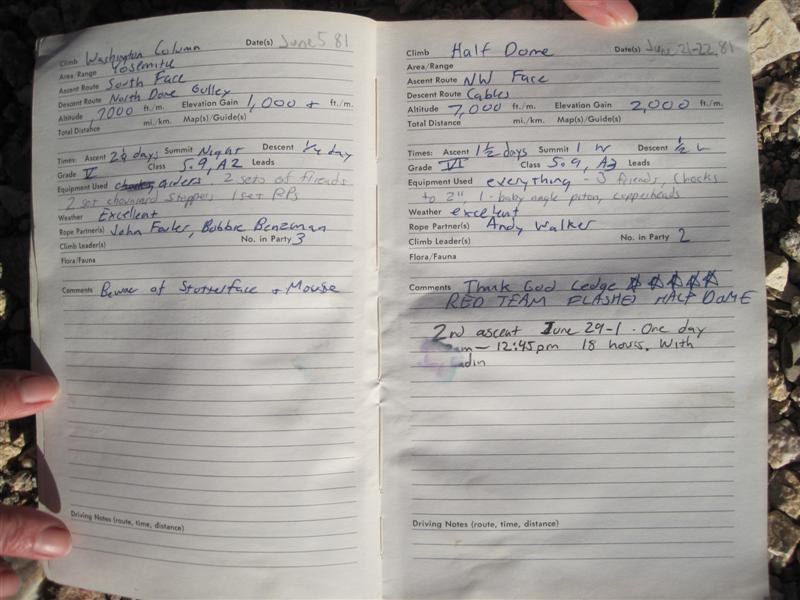 Climb Washington Column Date(s) June 5 81
Area/Range Yosemite
Ascent Route South Face
Descent Route North Dome Gulley
Altitude 7000 ft./m. Elevation Gain 1,000 + ft./m.
Total Distance mi./km. Map(s)/Guide(s)
Times: Ascent 2 1/4 days Summit Night Descent 1/4 day
Grade V Class 5.9, A2 Leads
Equipment Used aiders. 2 sets of friends
2 set chouinard stoppers 1 set RPs
Weather Excellent
Rope Partner(s) John Fowler, Bobbie Benzman
Climb Leader(s) No. in Party 3
Flora/Fauna
Comments Beware of Stutterface + Mouse
Driving Notes (route, time, distance)
Climb Half Dome Date(s) Jun. 21-22, 81
Area/Range
Ascent Route NW Face
Descent Route Cables
Altitude 7,000 ft./m. Elevation Gain 2,000 ft./m.
Total Distance mi./km. Map(s)/Guide(s)
Times: Ascent 1 1/2 days Summit 1 hr Descent 1/2
Grade VI Class 5.9, A3 Leads
Equipment Used everything - 3 friends, Chocks
to 2", 1-baby angle piton, copperheads
Weather excellent
Rope Partner(s) Andy Walker
Climb Leader(s) No. in Party 2
Flora/Fauna
Comments Thank God Ledge
RED TEAM FLASHES HALF DOME
2nd ascent June 29-1. One day
am - 12:45pm 18 hours. With
Driving Notes (route, time, distance)